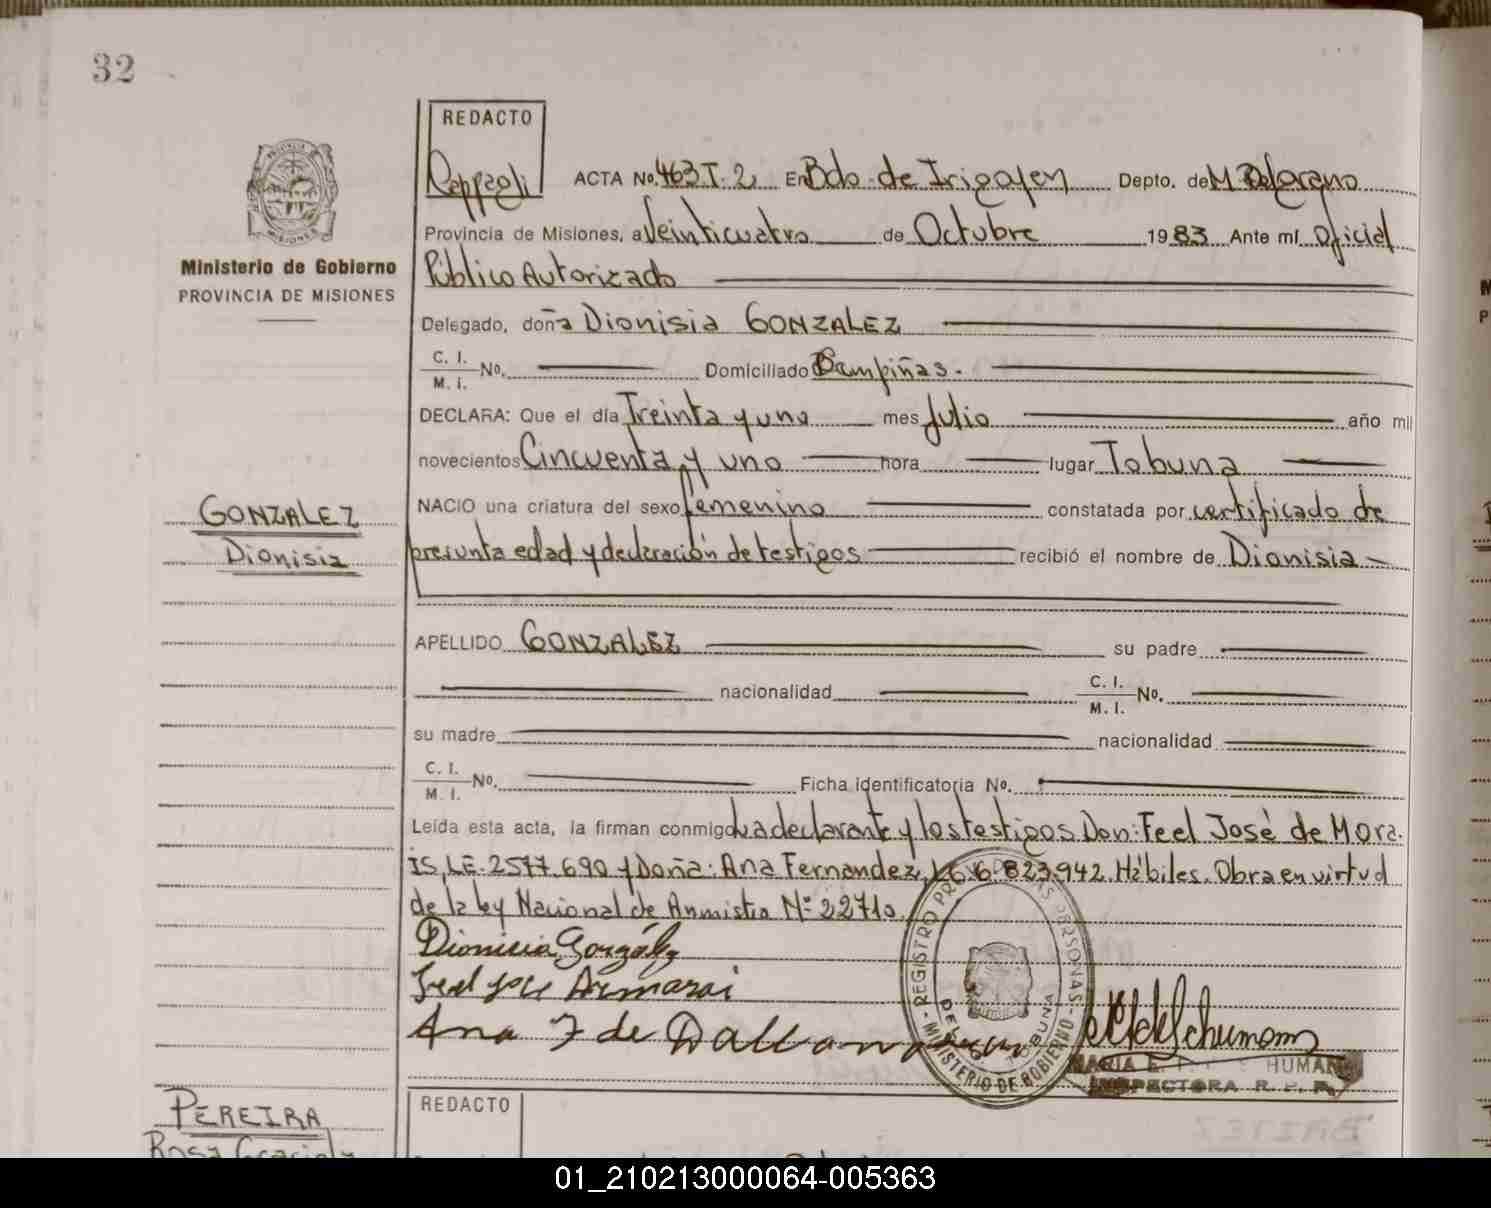 32
REDACTO
ACTA No. 463 T. 2 En Bdo de Irigoyen Depto. de M Belgrano
Ministerio de Gobierno
PROVINCIA DE MISIONES
Provincia de Misiones, a Veinticuatro de Octubre 1983 Ante mí Oficial
Público Autorizado
Delegado, doña Dionisia GONZALEZ
C. I.
M. I. No. Domiciliado Campiñas.
DECLARA: Que el día Treinta y uno mes Julio año mil
novecientos Cincuenta y uno hora lugar Tobuna
GONZALEZ
Dionisia
NACIO una criatura del sexo femenino constatada por certificado de
presunta edad y declaración de testigos recibió el nombre de Dionisia
APELLIDO GONZALEZ su padre
nacionalidad C. I.
M. I. No.
su madre nacionalidad
C. I.
M. I. No. Ficha identificatoria No.
Leída esta acta, la firman conmigo La declarante y los testigos Don: Feel José de Mora.
is, LE. 2577.690 y Doña: Ana Fernandez, 6.823.942. Hábiles. Obra en virtud
de la ley Nacional de Amnistia Nº 22710.
Dionicia González
Ana F de
REGISTRO PERSONAS - MINISTERIO DE GOBIERNO
TOBUNA
MARIA E. HUMAN
INSPECTORA R. P. P.
PEREIRA
Rosa
REDACTO
01_210213000064-005363